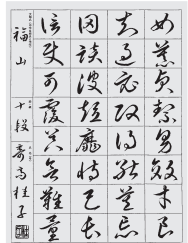 女慕貞絜男效才良
知過必改得能莫忘
罔談彼短靡恃己長
信使可覆器欲難量
福山 十段 桂子